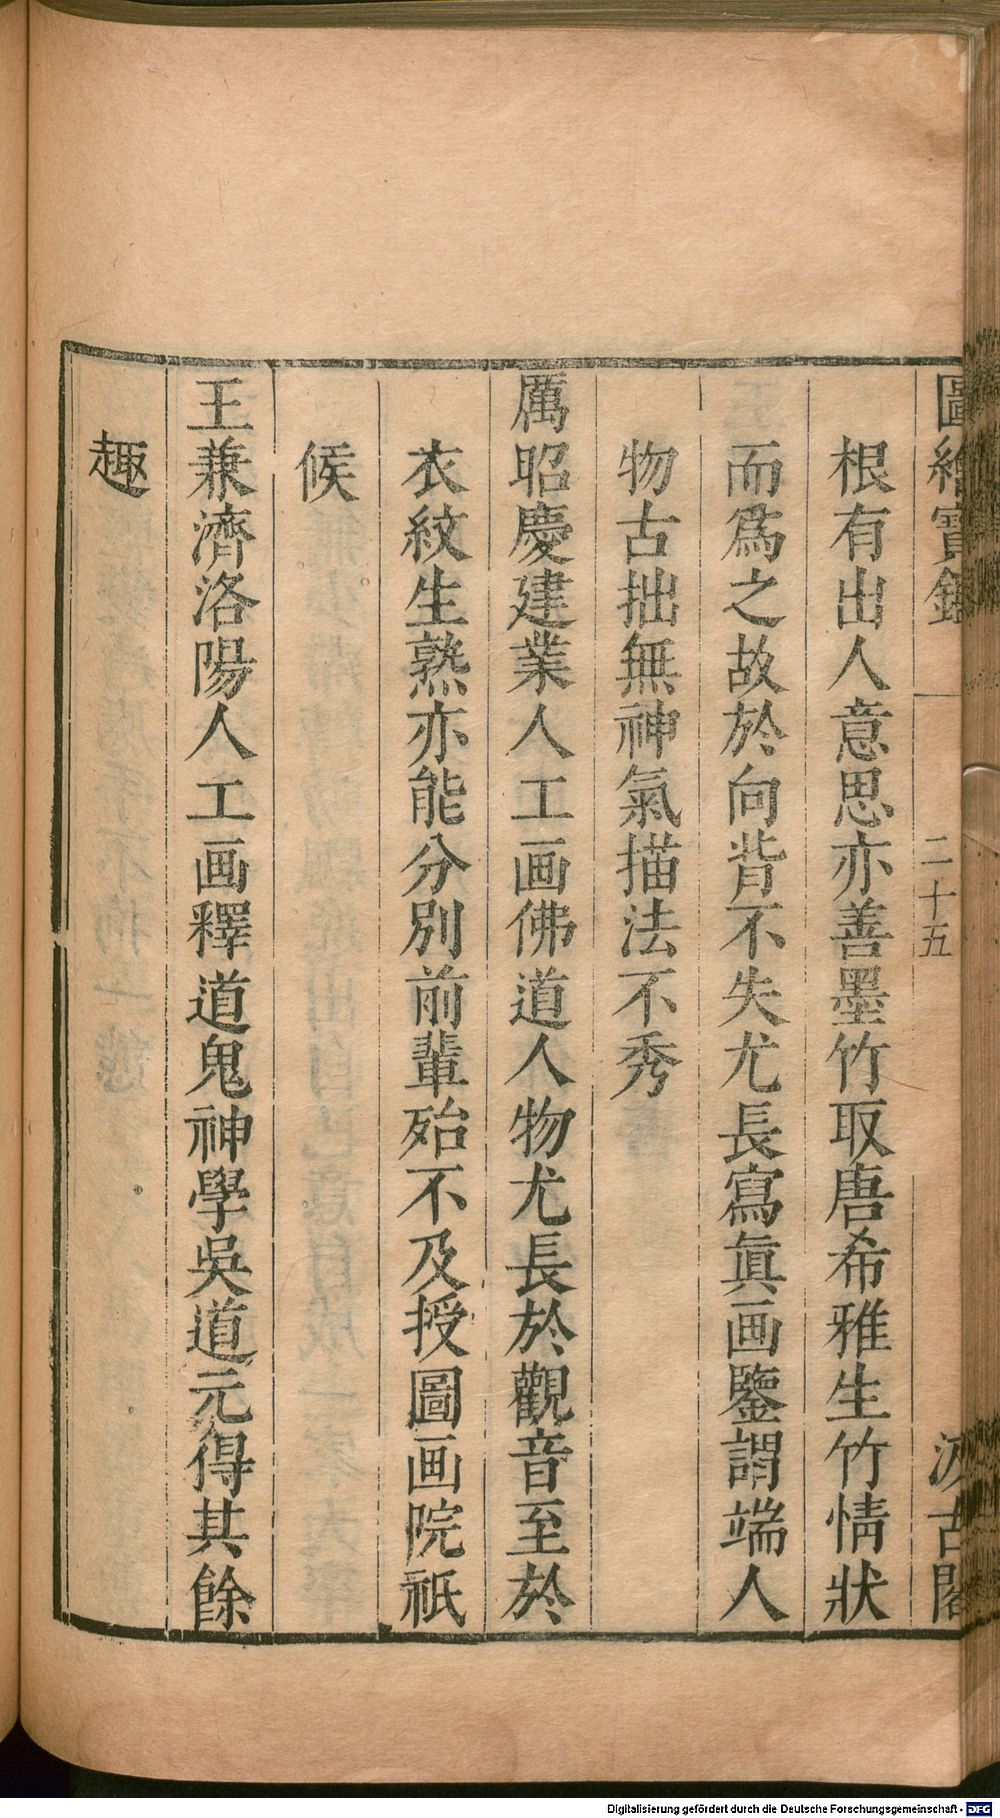 圖繪寶鑑 二十五 汲古閣
根有出人意思亦善墨竹取唐希雅生竹情狀
而爲之故於向背不失尤長寫眞画鑒謂端人
物古拙無神氣描法不秀
厲昭慶建業人工画佛道人物尤長於觀音至於
衣紋生熟亦能分別前輩殆不及授圖画院祇
候
王兼濟洛陽人工画釋道鬼神學吳道元得其餘
趣
Digitalisierung gefördert durch die Deutsche Forschungsgemeinschaft - DFG